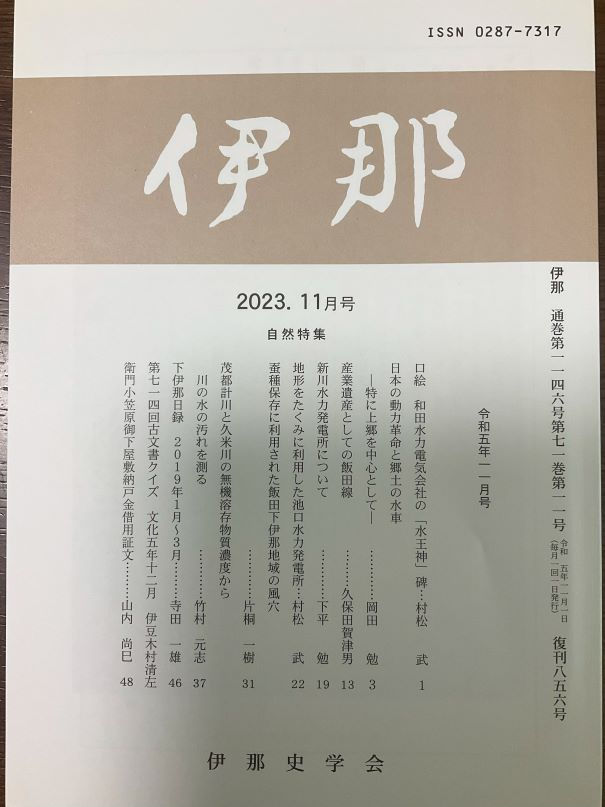 ISSN 0287-7317
伊那
2023. 11月号
自然特集
伊那 通巻第一一四六号第七一巻第一一号 令和 五年一一月一日 (毎月一回一日発行) 復刊八五六号
令和五年一一月号
口絵 和田水力電気会社の「水王神」碑…村松 武 1
日本の動力革命と郷土の水車
―特に上郷を中心として― …………岡田 勉 3
産業遺産としての飯田線 …………久保田賀津男 13
新川水力発電所について …………下平 勉 19
地形をたくみに利用した池口水力発電所…村松 武 22
蚕種保存に利用された飯田下伊那地域の風穴
…………片桐 一樹 31
茂都計川と久米川の無機溶存物質濃度から
川の水の汚れを測る …………竹村 元志 37
下伊那日録 2019年1月~3月…………寺田 一雄 46
第七一四回古文書クイズ 文化五年十二月 伊豆木村清左
衛門小笠原御下屋敷納戸金借用証文…………山内 尚巳 48
伊那史学会